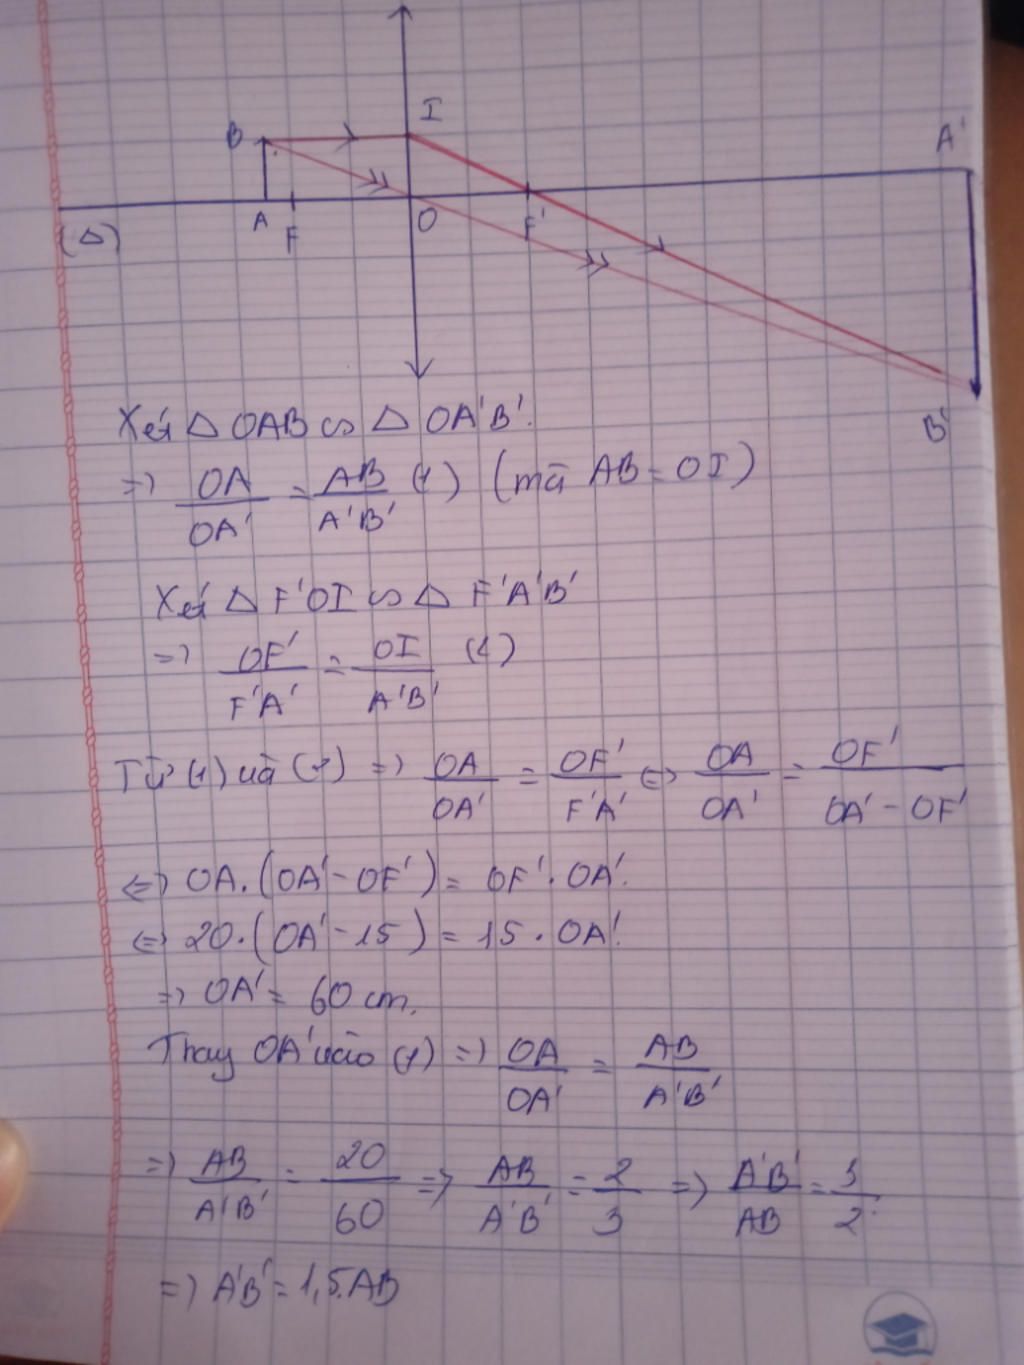 I
B
A'
A
F
O
F'
(Δ)
B'
Xét Δ OAB ∽ Δ OA'B'.
=> OA/OA' = AB/A'B' (1) (mà AB = OI)
Xét Δ F'OI ∽ Δ F'A'B'
=> OF'/F'A' = OI/A'B' (2)
Từ (1) và (2) => OA/OA' = OF'/F'A' <=> OA/OA' = OF'/OA' - OF'
<=> OA.(OA' - OF') = OF'. OA'.
<=> 20.(OA' - 15) = 15. OA'.
=> OA' = 60 cm.
Thay OA' vào (1) => OA/OA' = AB/A'B'
=> AB/A'B' = 20/60 => AB/A'B' = 2/3 => A'B'/AB = 3/2.
=> A'B' = 1,5.AB